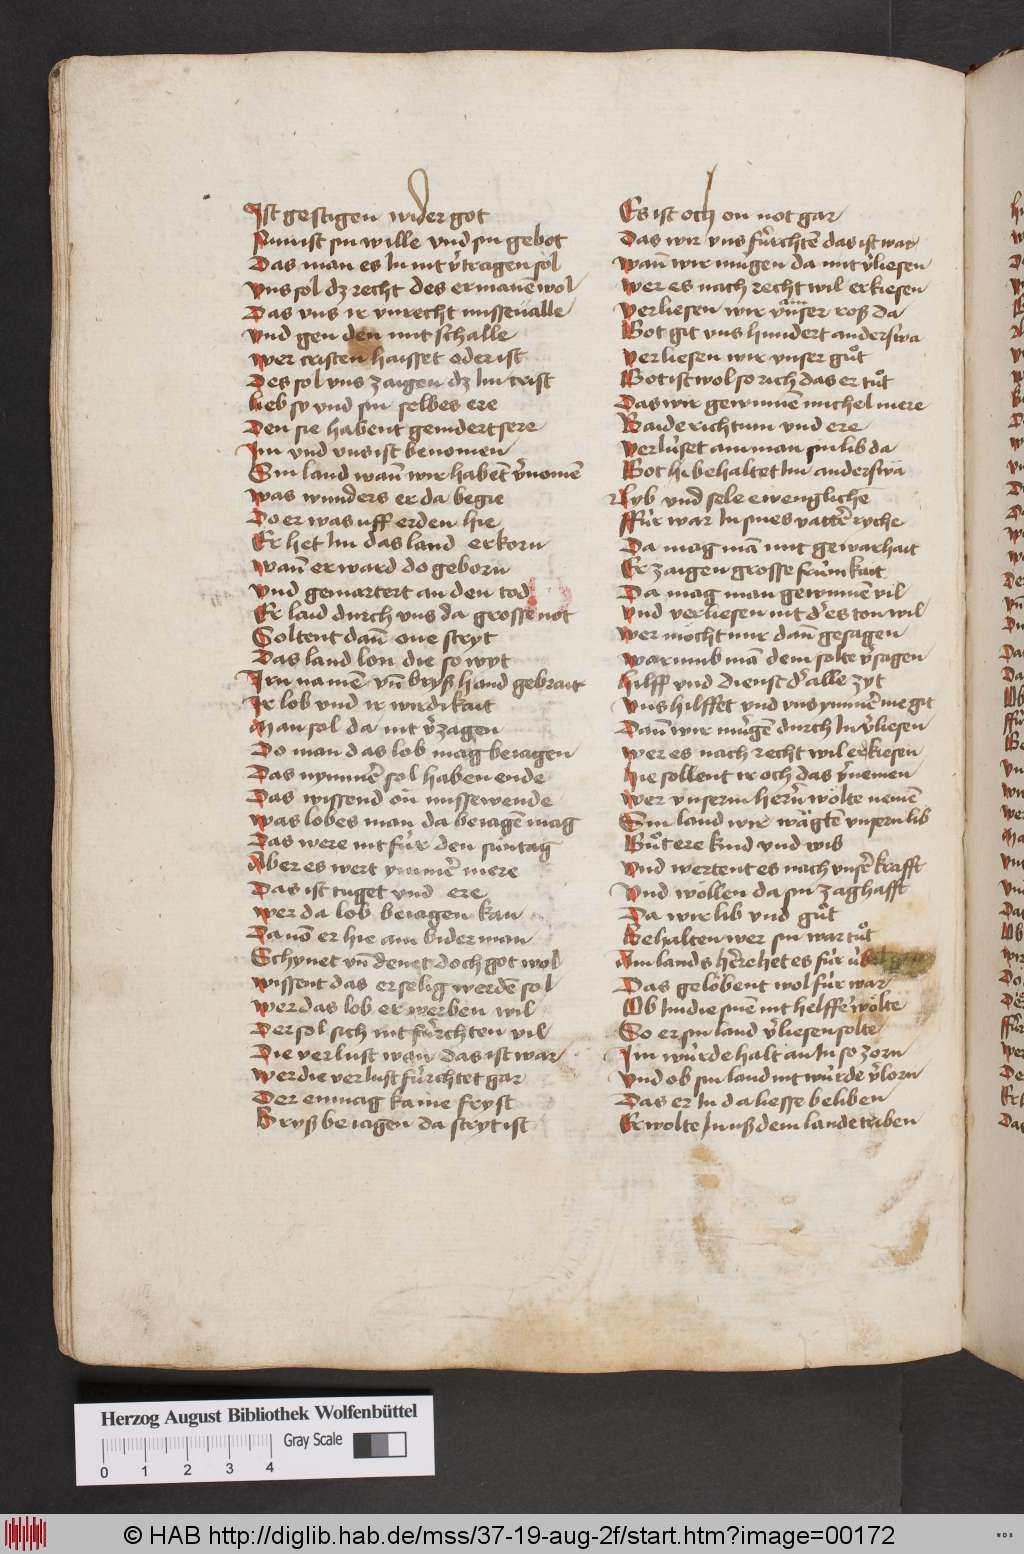 Ist gestigen wider got
Nun ist sin wille vnd sin gebot
Das man es In nit v̾tragen sol
Vns sol dz recht des ermanē wol
Das vns ir vnrecht misseualle
Vnd gen den mit schalle
Wer cristen haisset oder ist
Des sol vns zaigen dz Im crist
Lieb sy vnd sin selbes ere
Den sie habent gemdert sere
Im vnd vns ist benomen
Sin land wañ wir habēt v̾nomē
Was wunders er da begie
Do er was uff erden hie
Er het Im das land erkorn
Wañ er ward do geborn
Vnd gemartert an den tod
Er laid durch vns da grosse not
Soltent dañ one stryt
Das land lon die so wyt
Irn namē vñ bryß hand gebrait
Ir lob vnd ir wirdikait
Man sol da nit v̾zagen
Do man das lob mag beiagen
Das nymmer̾ sol haben ende
Das wissend on missewende
Was lobes man da beiagē mag
Das were nit für den suntag
Aber es wert ymmer̾ mere
Das ist tuget vnd ere
Wer da lob beiagen kan
Da nō er hie am bider man
Schynet vñ denet doch got wol
Wissent das er selig werdē sol
Wer das lob erwerben wil
Der sol sich nit fürchten vil
Die verlust wan das ist war
Wer die verlust fürchtet gar
Der enmag kaine fryst
Bryß beiagen da stryt ist
Es ist och on not gar
Das wir vns fürchtē das ist war
Wañ wir mügen da nit v̾liesen
Wer es nach recht wil erkiesen
Verliesen wir vnser roß da
Got git vns hundert anderswa
Verliesen wir vnser gůt
Got ist wol so rich das er tůt
Das wir gewinnē michel mere
Baide richtum vnd ere
Verlüset am man sin lib da
Got he behaltet Im anderswa
Lyb vnd sele ewenglichē
Für war In sines vatter̾ ryche
Da mag mā mit gewarhait
Er zaigen grosse frümkait
Da mag man gewinnē vil
Vnd verliesen nit d̾ es ton wil
Wer mocht mir dañ gesagen
Warumb mā dem solte v̾sagen
Hilff vnd dienst d̾ alle zyt
Vns hilffet vnd vns ymmer̾ me git
Dañ wir mügē durch In v̾liesen
Wer es nach recht wil erkiesen
Hie sollent ir och das v̾nemen
Wer vnserm her̾n wolte nemē
Sin land wir wägtē vnsern lib
Gůt ere kind vnd wib
Vnd wertent es nach vnser̾ krafft
Vnd wöllen da sin zaghafft
Da wir lib vnd gůt
Behalten wer sin war tůt
Am lands her̾re het es für übel
Das gelöbent wol für war
Ob Im die sinē nit helffē wölte
So er sin land v̾liesen solte
Im würde halt an In so zorn
Vnd ob sin land nit würde v̾lorn
Das er In da liesse beliben
Er wolte In uß dem lande triben
Herzog August Bibliothek Wolfenbüttel
Gray Scale
0 1 2 3 4
© HAB http://diglib.hab.de/mss/37-19-aug-2f/start.htm?image=00172